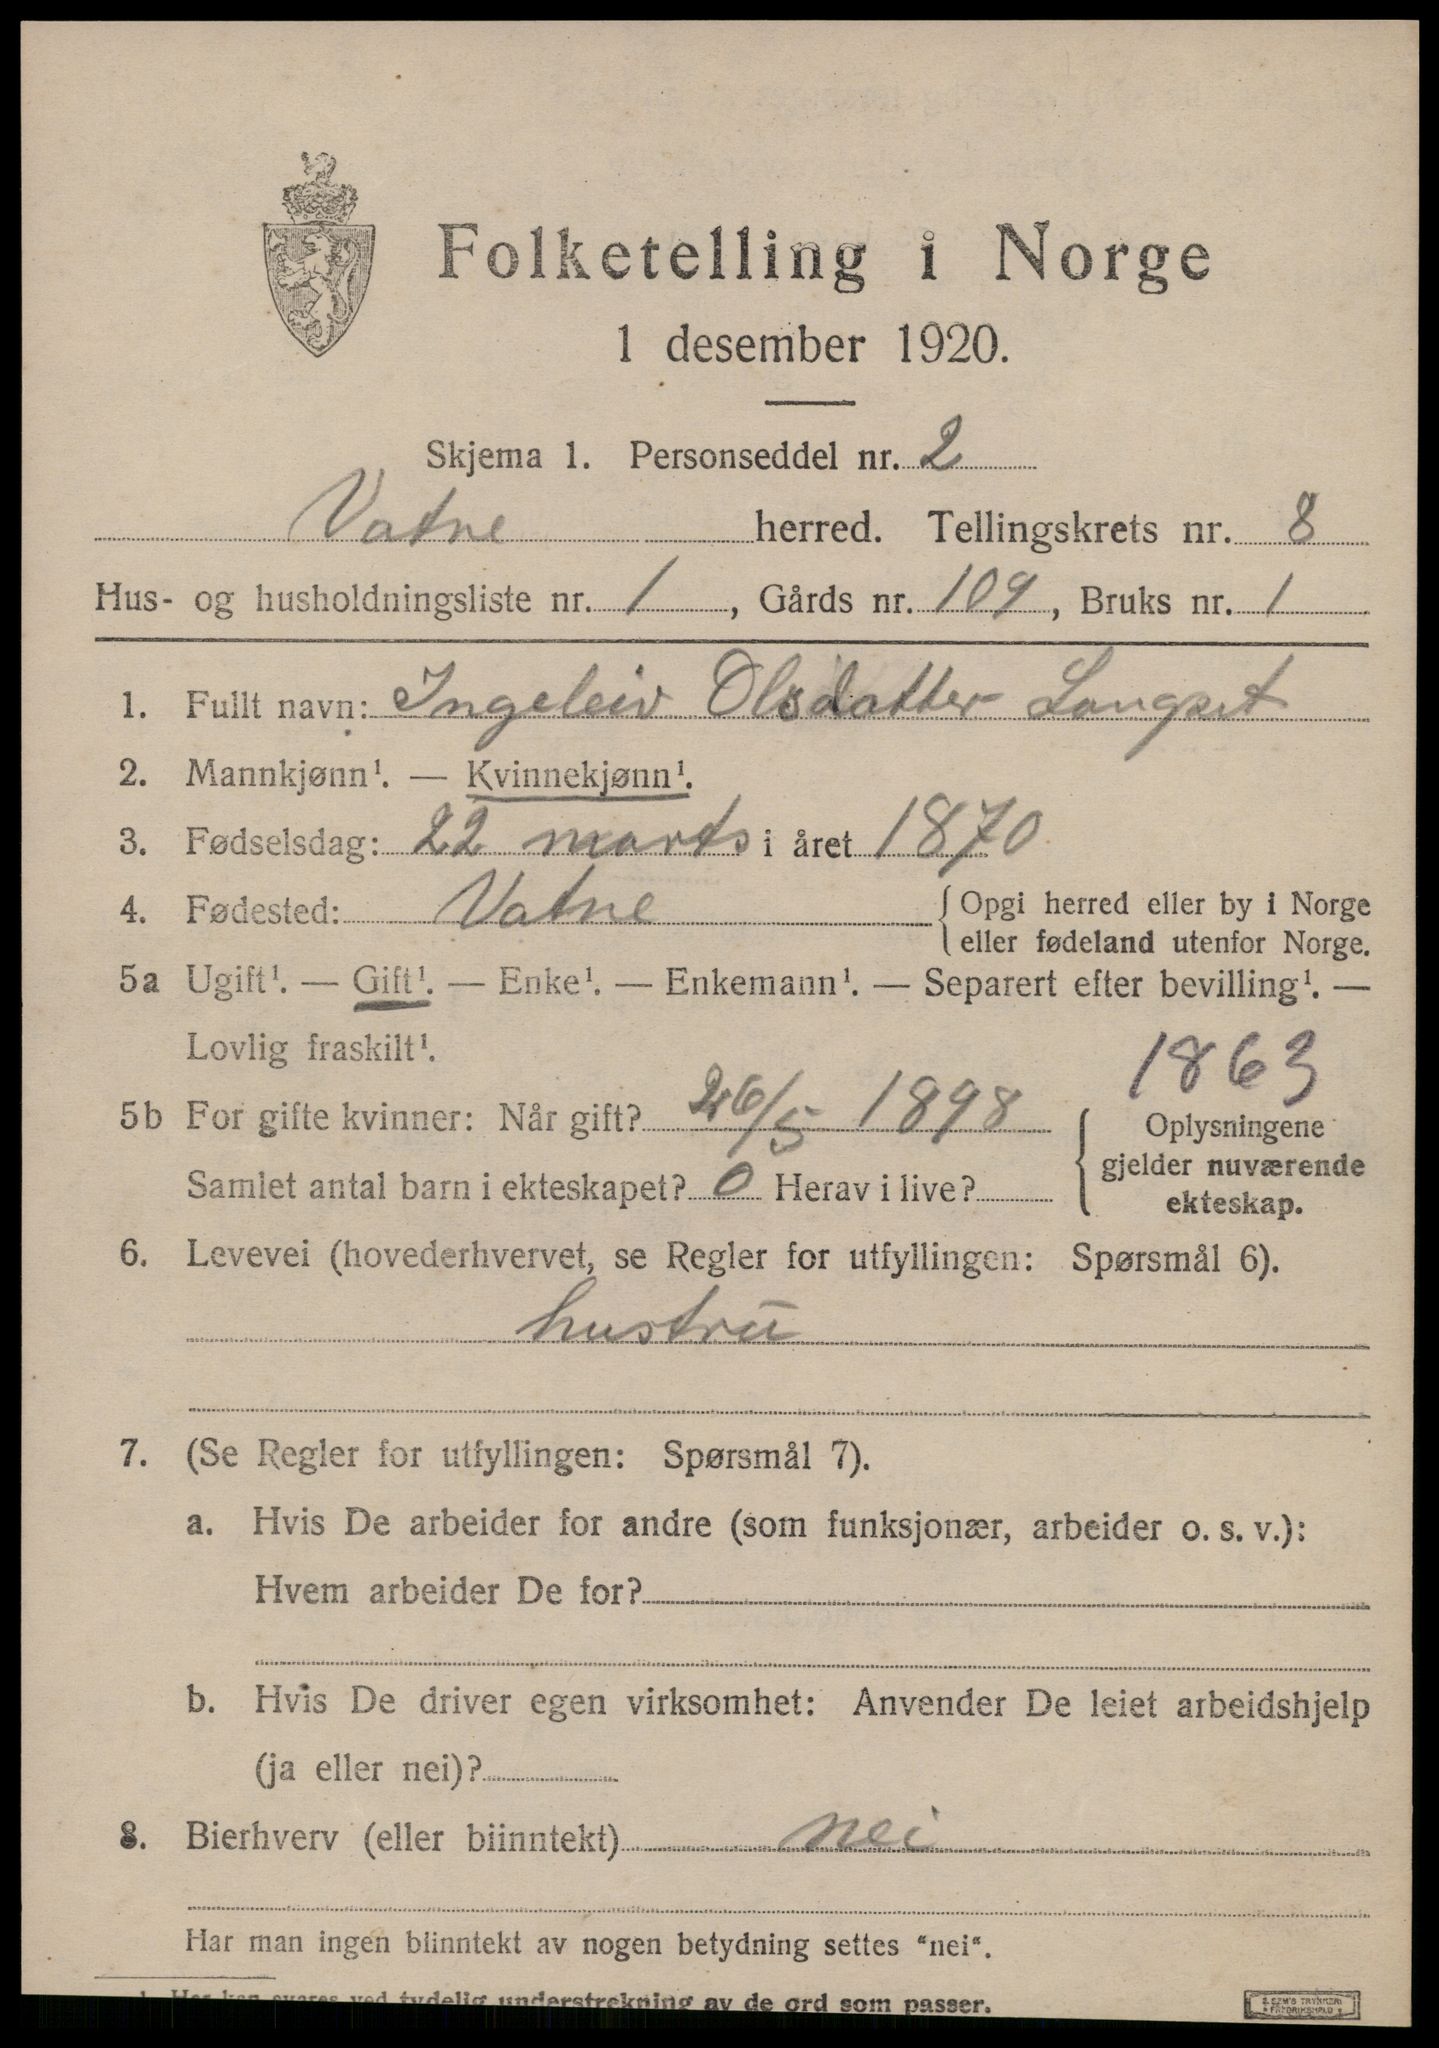 Folketelling i Norge
1 desember 1920.
Skjema 1. Personseddel nr. 2
Vatne herred. Tellingskrets nr. 8
Hus- og husholdningsliste nr. 1, Gårds nr. 109, Bruks nr. 1
1. Fullt navn: Ingeleiv Olsdatter Langset
2. Mannkjønn¹. — Kvinnekjønn¹.
3. Fødselsdag: 22 marts i året 1870
4. Fødested: Vatne { Opgi herred eller by i Norge
eller fødeland utenfor Norge.
5a Ugift¹. — Gift¹. — Enke¹. — Enkemann¹. — Separert efter bevilling¹. —
Lovlig fraskilt¹. 1863
5b For gifte kvinner: Når gift? 26/5 1898 { Oplysningene
gjelder nuværende
Samlet antal barn i ekteskapet? 0 Herav i live?
ekteskap.
6. Levevei (hovederhvervet, se Regler for utfyllingen: Spørsmål 6).
hustrū
7. (Se Regler for utfyllingen: Spørsmål 7).
a. Hvis De arbeider for andre (som funksjonær, arbeider o. s. v.):
Hvem arbeider De for?
b. Hvis De driver egen virksomhet: Anvender De leiet arbeidshjelp
(ja eller nei)?
8. Bierhverv (eller biinntekt) nei
Har man ingen biinntekt av nogen betydning settes "nei".
1. Her kan svares ved tydelig understrekning av de ord som passer.
E. SEM'S TRYKKERI
FREDRIKSHALD